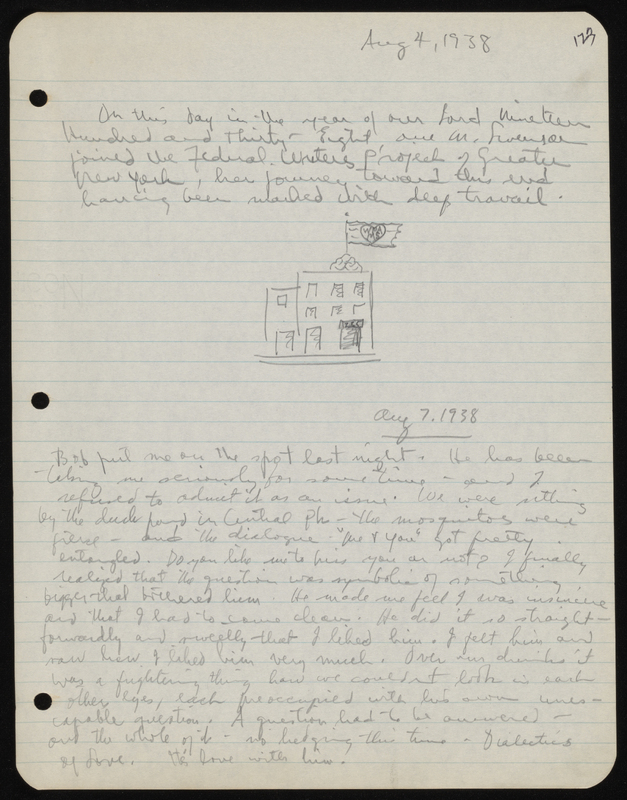 Aug 4, 1938
123
On this day in the year of our Lord Nineteen
Hundred and Thirty-Eight, one M. Swenson
joined the Federal Writers Project of Greater
New York, her journey toward this end
having been marked with deep travail.
WPA
Aug 7. 1938
Bob put me on the spot last night. He has been
taking me seriously for some time - and I
refused to admit it as an issue. We were sitting
by the duck pond in Central Pk - the mosquitos were
fierce - and the dialogue "me & you" got pretty
entangled. Do you like me to kiss you or not? I finally
realized that the question was symbolic of something
bigger that bothered him. He made me feel I was insincere
and that I had to come clean. He did it so straight-
forwardly and sweetly that I liked him. I felt him and
saw how I liked him very much. Over our drinks it
was a frightening thing how we couldn't look in each
other eyes, each preoccupied with his own ines-
capable question. A question had to be answered -
and the whole of it - no hedging this time - Dialectics
of Love. He's love with him.